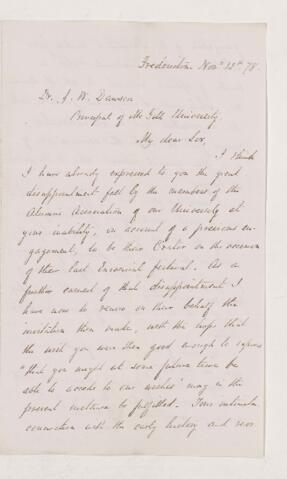 Fredericton Novr 12th 78.
Dr. J. W. Dawson
Principal of McGill University.
My dear Sir,
I think
I have already expressed to you the great
disappointment felt by the members of the
Alumni Association of our University at
your inability, on account of a previous en-
gagement, to be their Orator on the occasion
of their last Encaenial festival. As a
further earnest of that disappointment I
have now to renew on their behalf the
invitation then made, with the hope that
the wish you were then good enough to express
"that you might at some future time be
able to accede to our wishes" may in the
present instance be fulfilled. Your intimate
connection with the early history and